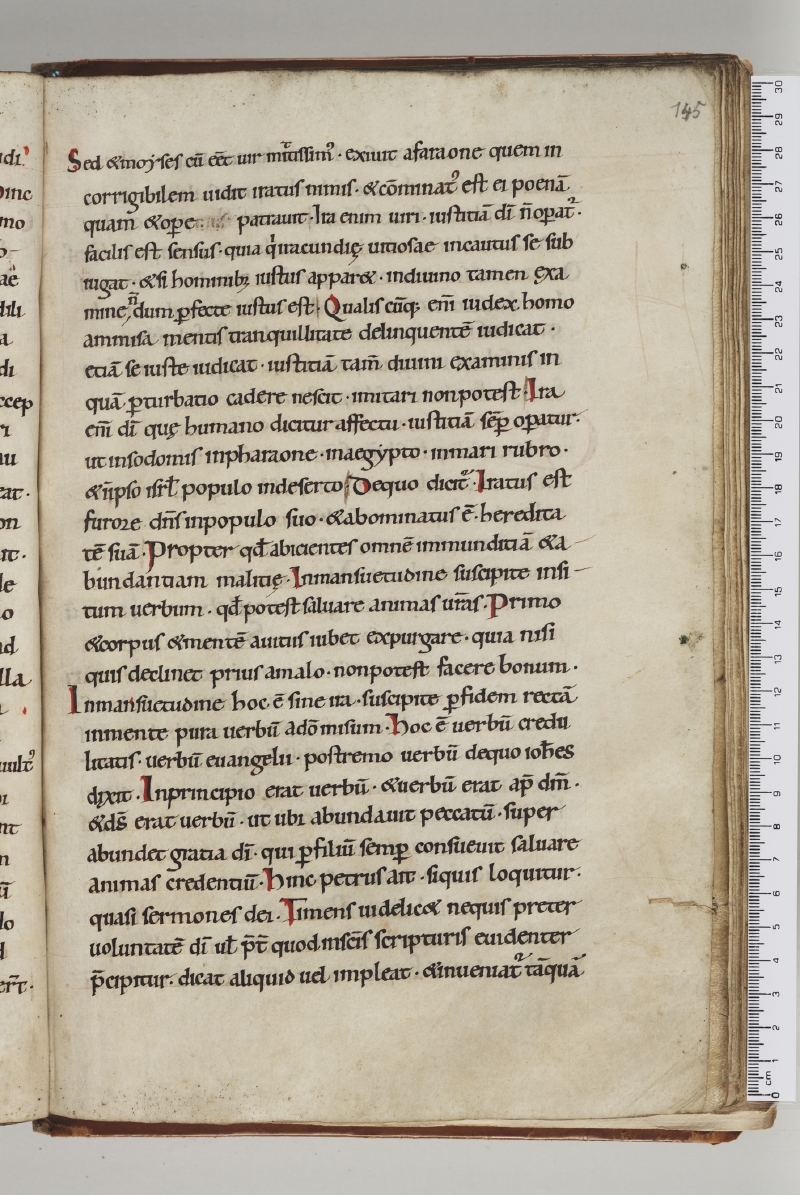 145
Sed &moyses cū eēt uir mitissim᾽ · exiuit afaraone quem in
corrigibilem uidit iratus nimis · &cōminat᾽ est ei poenā
quam &ope patrauit · Ira enim uiri · iustitiā dī n̄ opat᾽ ·
facilis est sensus · quia q iracundię uitiosae incautus se sub
iugat · &si hominib; iustus appar& · indiuino tamen exa
mine, n̄dum ꝑfecte iustus est · Qualiscūq; em̄ iudex homo
ammisa mentis tranquillitate delinquentē iudicat ·
etiā se iuste iudicat · iustitiā tam̄ diuini examinis in
quā ꝑturbatio cadere nescit · imitari nonpotest · Ira
em̄ dī quę humano dicitur affectu · iustitiā sēꝑ opatur ·
ut insodomis inpharaone · inaegypto · inmari rubro ·
&īipso isrl̄ populo indeserto · Dequo dicit᾽ · Iratus est
furore dn̄s inpopulo suo · &abominatus ē · heredita
tē suā · Propter qd̄ abicientes omnē immunditiā &a
bundantiam malitię · Inmansuetudine suscipite insi
tum uerbum · qd̄ potest saluare animas ur̄as · Primo
&corpus &mentē auitiis iubet expurgare · quia nisi
quis declinet prius amalo · nonpotest facere bonum ·
Inmansuetudine hoc ē sine ira · suscipite ꝑfidem rectā
inmente pura uerbū adō misum · Hoc ē uerbū credu
litatis · uerbū euangelii · postremo uerbū dequo ioh̄es
dixit · Inprincipio erat uerbū · &uerbū erat ap̄ dm̄ ·
&ds̄ erat uerbū · ut ubi abundauit peccatū · super
abundet gratia dī · qui ꝑfiliū semꝑ consueuit saluare
animas credentiū · Hinc petrus ait · siquis loquitur ·
quasi sermones dei · Timens uidelic& nequis preter
uoluntatē dī ul̄ p̄t quod inscīs scripturis euidenter
p̄cipitur · dicat aliquid uel impleat · &inueniat᾽ tāquā